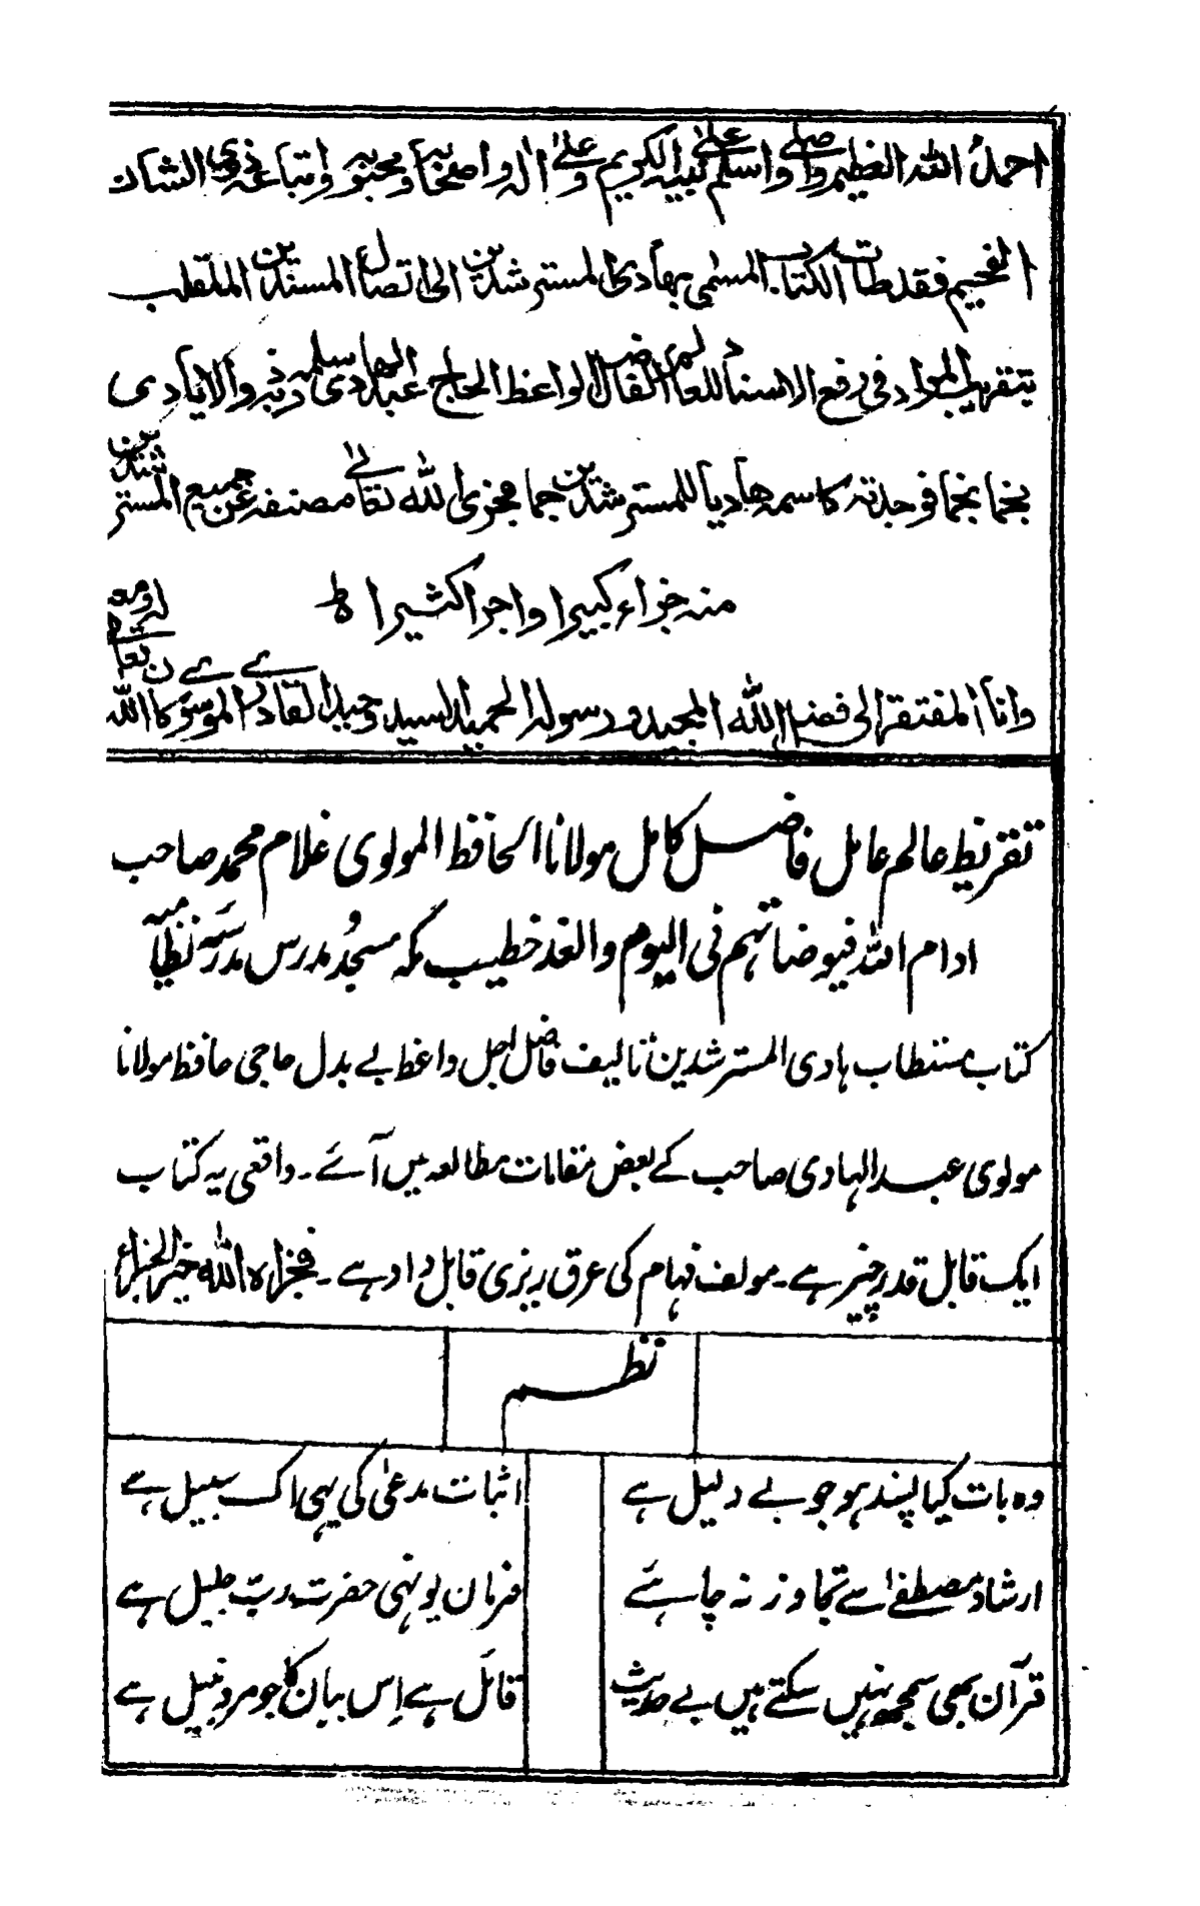 احمد اللہ العظیم واصلی واسلم علیٰ نبیہ الکریم وعلیٰ اٰلہ واصحابہ ومحبیہ واتباعہ ذوی الشان
الفخیم فقد طالعت الکتاب المسمی بهادی المسترشدین الی اتصال المسندین الملقب
بتقریب المراد فی رفع الاسناد للعالم الفاضل الواعظ الحاج عبد الهادی سلمہ ربہ ذو الایادی
بخما بخما فوجدتہ کاسمہ هادیا للمسترشدین جما فجزی اللہ تعالیٰ مصنفہ عن جمیع المسترشدین
منہ جزاء کبیرا واجرا کثیرا ط
وانا المفتقر الی فضل اللہ المجید ورسولہ الحمید السید وحید القادری الموسوی کان اللہ تعالیٰ لہ ومعہ
تقریظ عالم عامل فاضل کامل مولانا الحافظ المولوی غلام محمد صاحب
ادام اللہ فیوضاتہم فی الیوم والغد خطیب مکہ مسجد و مدرس مدرسہ نظامیہ
کتاب مستطاب ہادی المسترشدین تالیف فاضل اجل واعظ بے بدل حاجی حافظ مولانا
مولوی عبدالہادی صاحب کے بعض مقامات مطالعہ میں آئے۔ واقعی یہ کتاب
ایک قابل قدر چیز ہے۔ مولف فہام کی عرق ریزی قابل داد ہے۔ فجزاہ اللہ خیر الجزاء
نظم
وہ بات کیا پسند ہو جو بے دلیل ہے اثبات مدعیٰ کی یہی اک سبیل ہے
ارشاد مصطفےٰ سے تجاوز نہ چاہئے فرمان یونہی حضرت رب جلیل ہے
قرآن بھی سمجھ نہیں سکتے ہیں بے حدیث قائل ہے اِس بیان کا جو مرد نبیل ہے